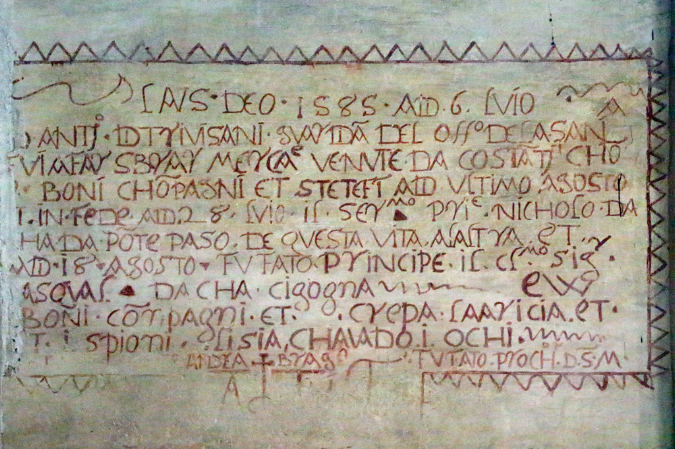 LAVS · DEO · 1585 · AID · 6 · LVIO
ANTO · D TRIVISANI · GVARDA DEL OFFO DELA SAN
VENVTE DA COSTATI CHO
BONI CHOPAGNI ET STETET AID VLTIMO AGOSTO
IN · FEDE AID 28 · LVIO · IL SERMO PRIE · NICHOLO · DA
HA DA POTE PASO · DE QVESTA VITA ALALTRA · ET ·
AID · 18 · AGOSTO · FV FATO PRINCIPE · IL CLMO SIGR ·
ASQVAL DA CHA · CIGOGNA
BONI · COMPAGNI · ET · CREPA · LAAVICIA · ET ·
I SPIONI · GLI SIA, CHAVADO · I · OCHI ·
ANDREA + BRAGO FV FATO · PROCH · D · S · M ·